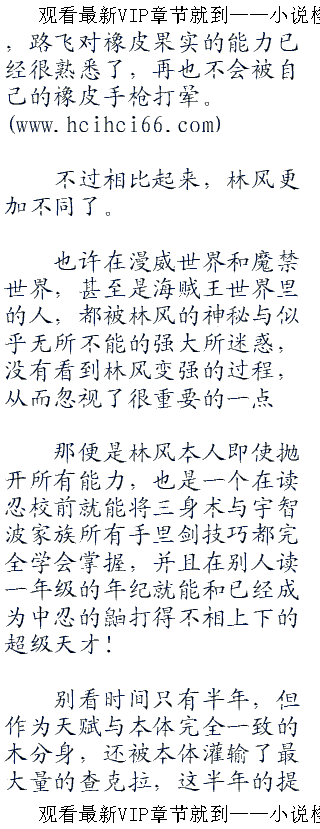 观看最新VIP章节就到——小说
，路飞对橡皮果实的能力已
经很熟悉了，再也不会被自
己的橡皮手枪打晕。
(www.hcihci66.com)
不过相比起来，林风更
加不同了。
也许在漫威世界和魔禁
世界，甚至是海贼王世界里
的人，都被林风的神秘与似
乎无所不能的强大所迷惑，
没有看到林风变强的过程，
从而忽视了很重要的一点
那便是林风本人即使抛
开所有能力，也是一个在读
忍校前就能将三身术与宇智
波家族所有手里剑技巧都完
全学会掌握，并且在别人读
一年级的年纪就能和已经成
为中忍的鼬打得不相上下的
超级天才！
别看时间只有半年，但
作为天赋与本体完全一致的
木分身，还被本体灌输了最
大量的查克拉，这半年的提
观看最新VIP章节就到——小说